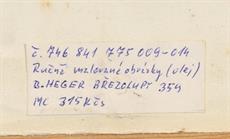 č. 746 841 775 009-014
Ručně malované obrázky (olej)
B. HEGER BŘEZOLUPY 354
MC 315 Kčs